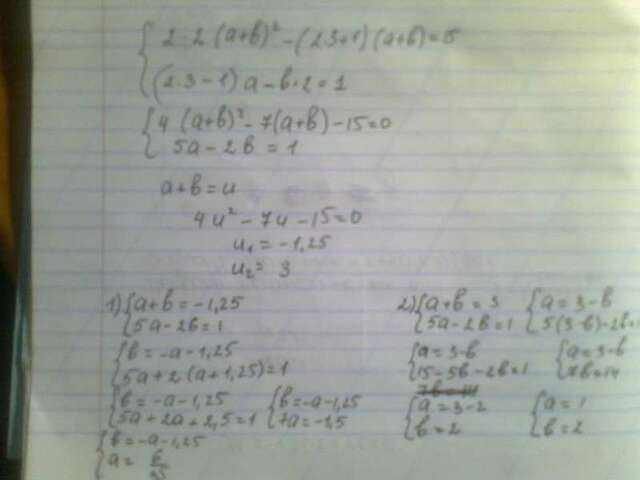 2·2(a+b)² - (2·3+1)(a+b)=15
(2·3-1)a - b·2=1
4(a+b)² - 7(a+b) - 15=0
5a - 2b = 1
a+b=u
4u² - 7u - 15=0
u₁ = -1,25
u₂ = 3
1) a+b = -1,25
5a - 2b = 1
b = -a-1,25
5a+2(a+1,25)=1
b = -a-1,25
5a+2a+2,5=1
b = -a-1,25
7a = -1,5
b = -a-1,25
a =
2) a+b = 3
5a - 2b = 1
a = 3-b
5(3-b)-2b
a = 3-b
15-5b-2b=1
a = 3-b
7b=14
a = 3-2
b = 2
a = 1
b = 2